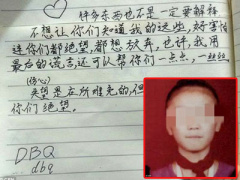 许多东西也不是一定要解释
不想让你们知道我的这些，好害怕
连你们都绝望，都想放弃，也许，我用
最后的谎言还可以帮你们一点点，一丝丝
(伤心)
失望是在所难免的，但
你们绝望。
DBQ
dbq